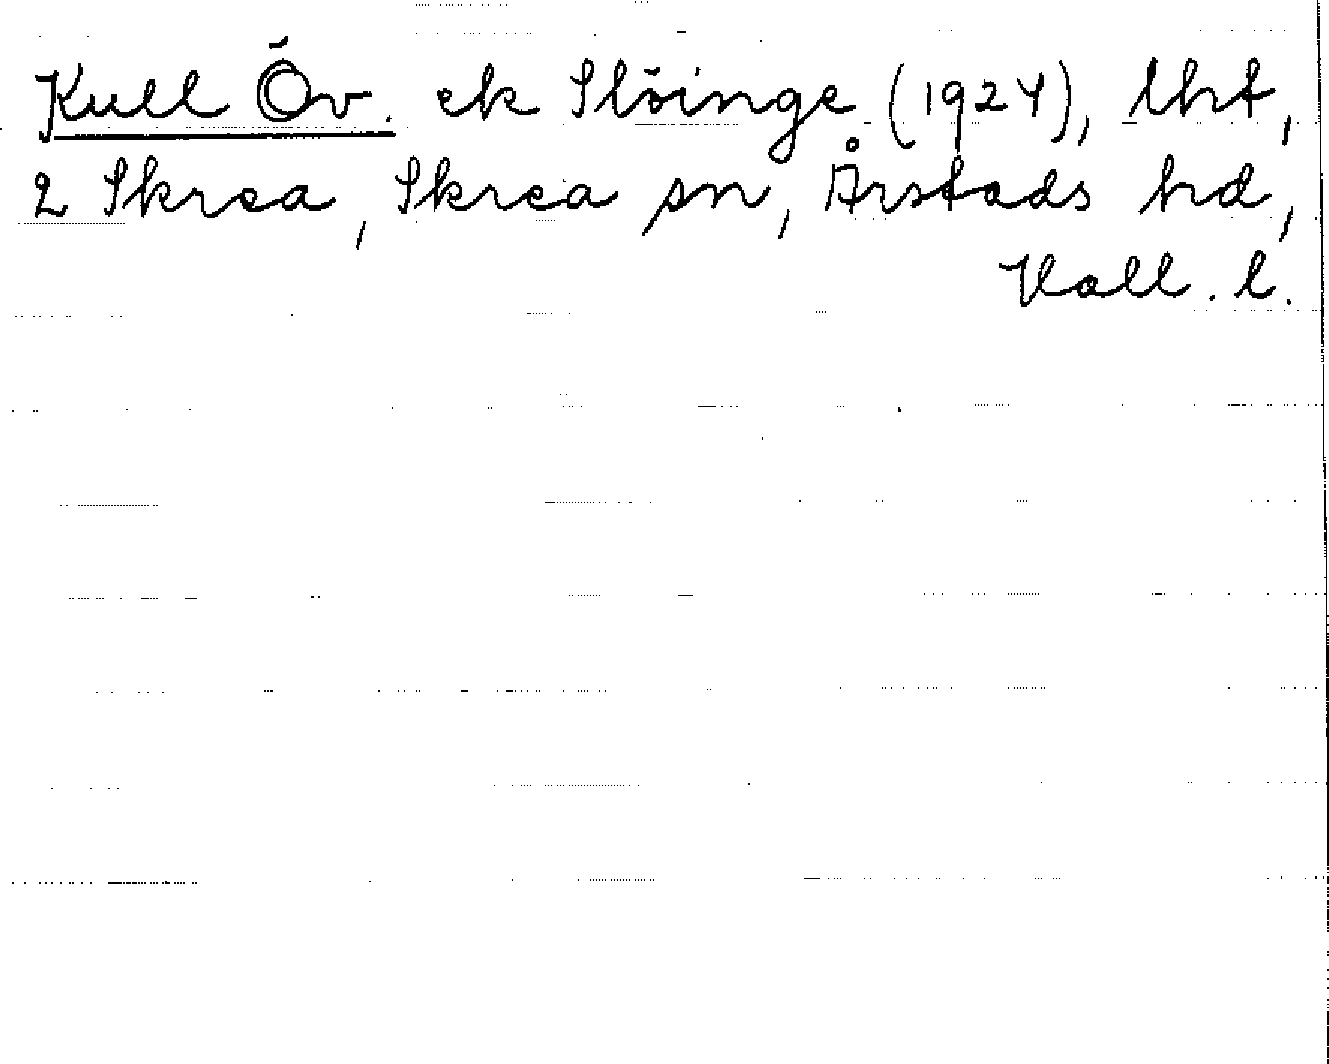 Kull Öv. ek Slöinge (1924), lht,
2 Skrea, Skrea sn, Årstads hd,
Hall. l.